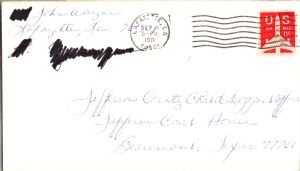 John
Lafayette, La. 70501
LAFAYETTE, LA
PM
1971
70501
US
AIR MAIL
11¢
Jefferson County Child Support Office
Jefferson Court House
Beaumont, Texas 77701